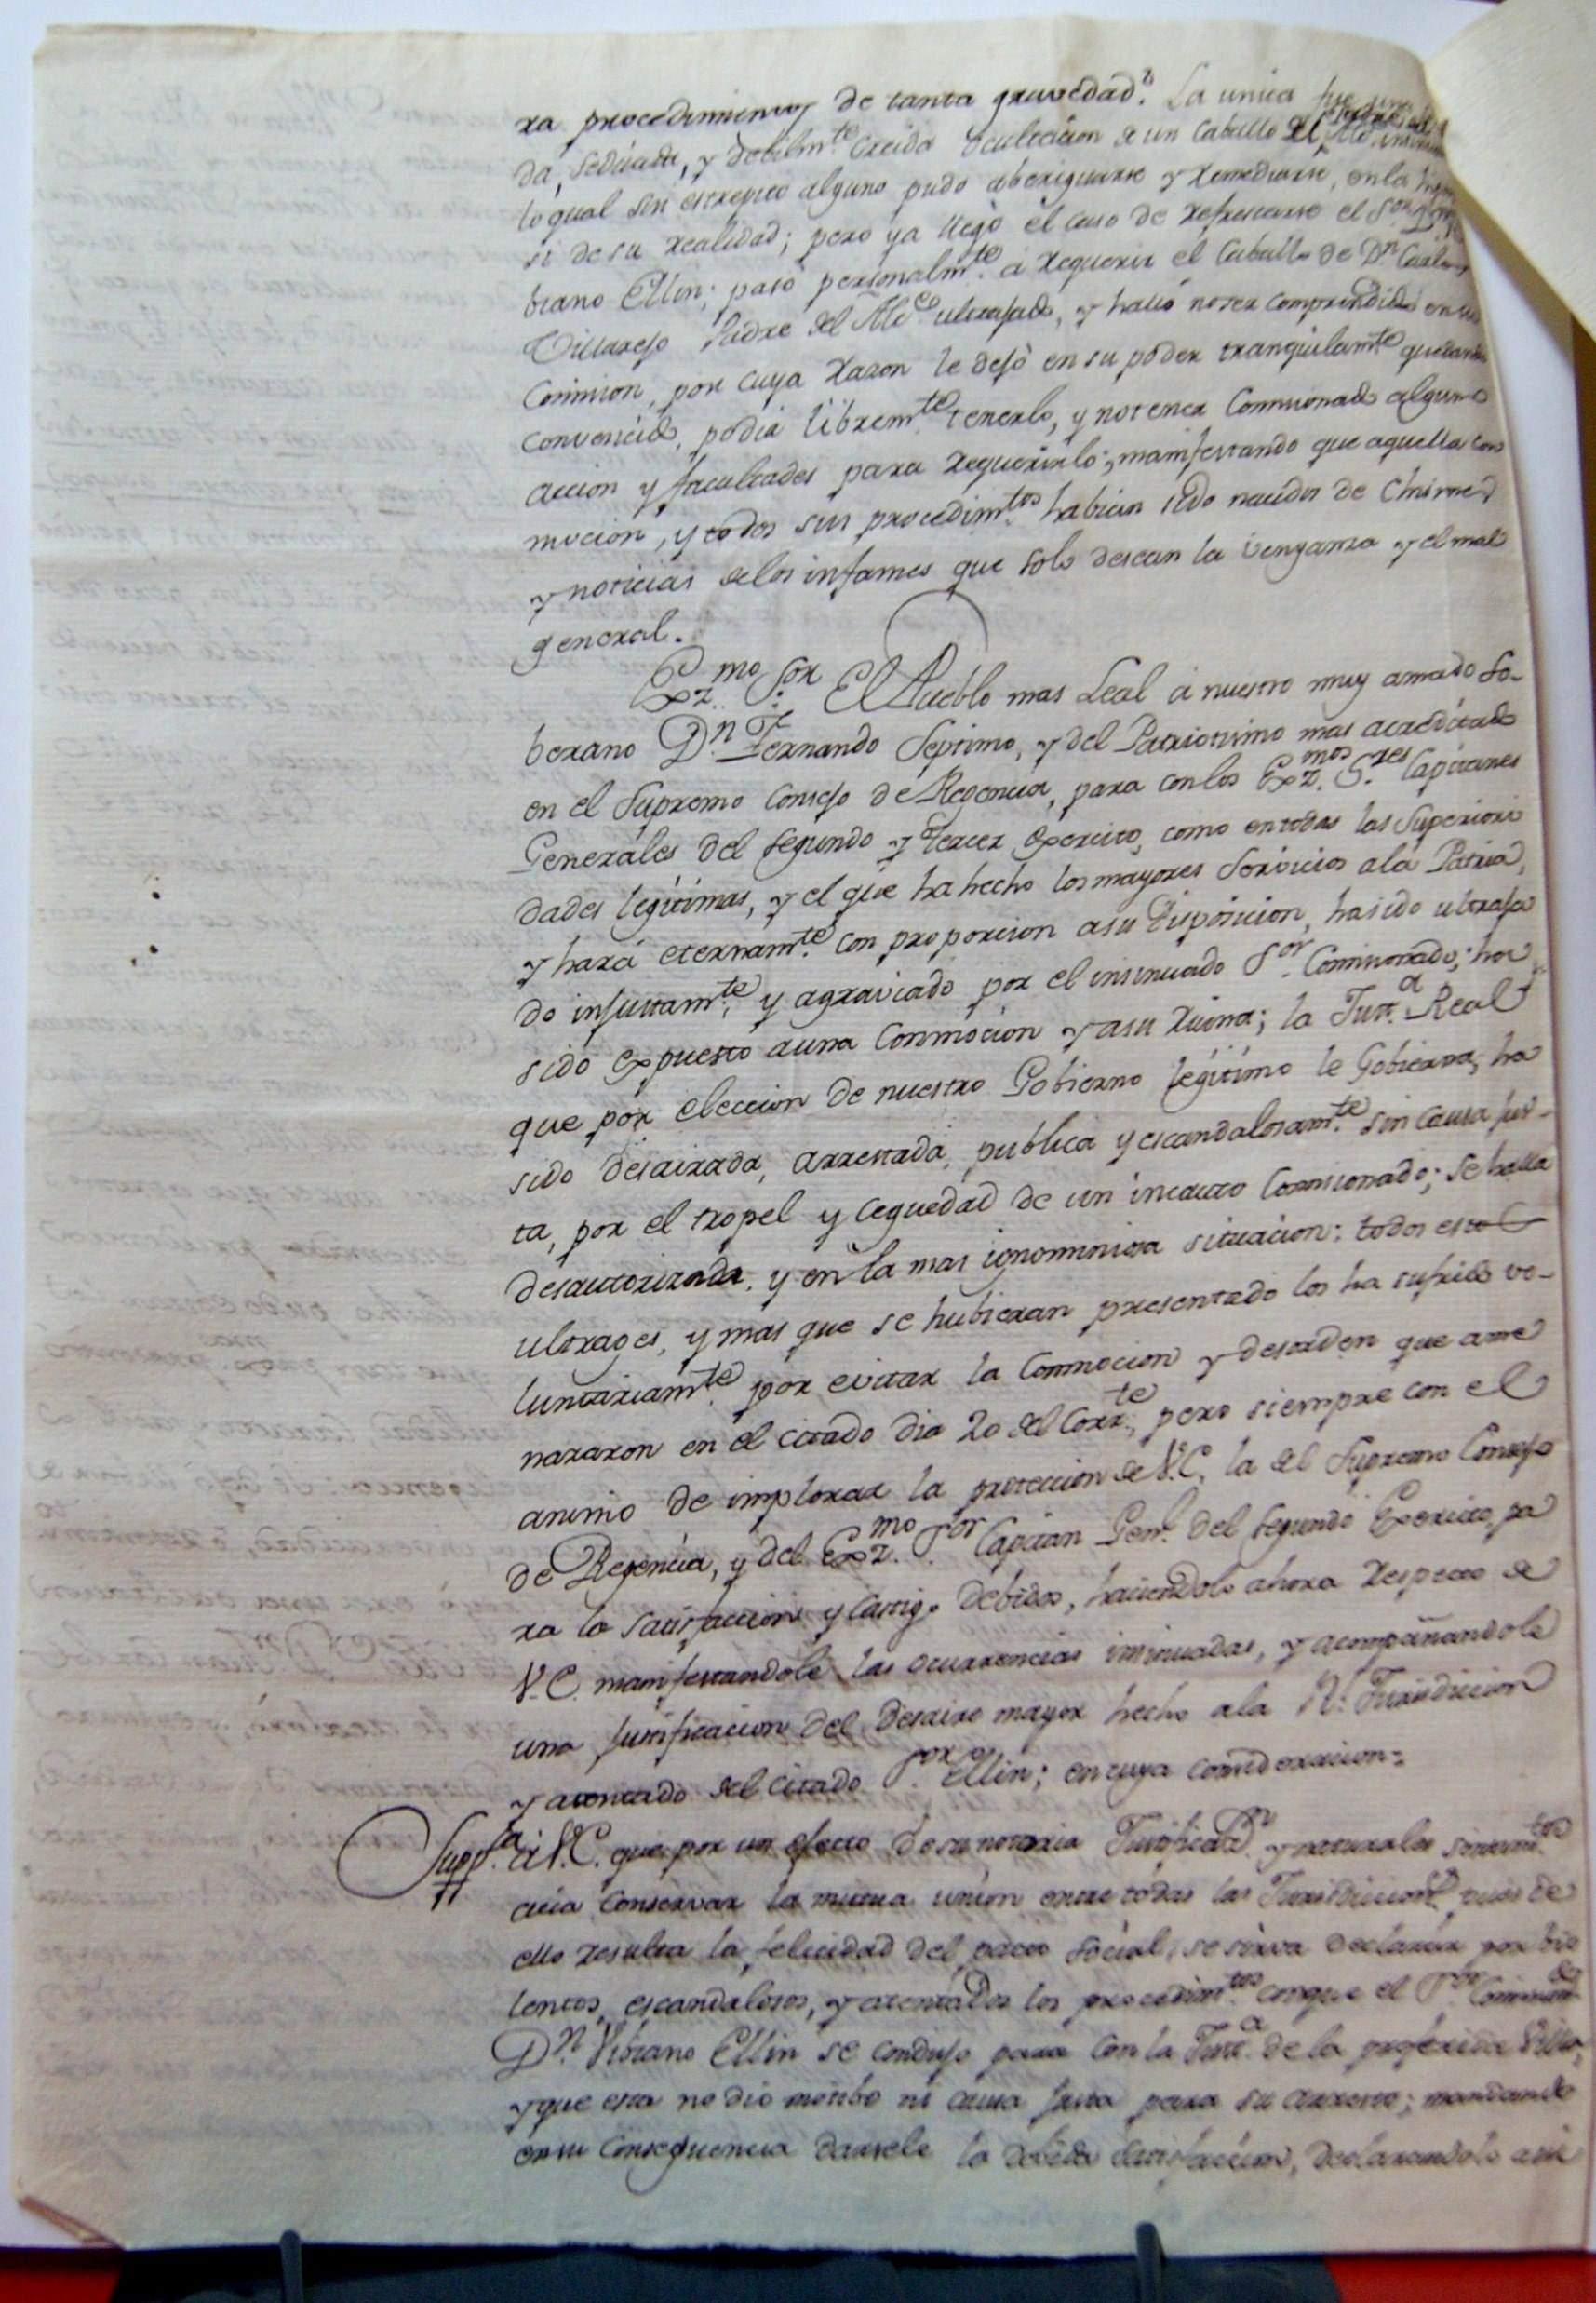 ra procedimientos de tanta gravedad. La unica fue una
da, seducida, y debilmte. creida ocultacion de un Caballo del Alce.
lo qual sin estrepito alguno pudo aberiguarse y remediarse, en la
si de su realidad; pero ya llegó el caso de refrescarse el Sor. Dn.
biano Ellin; pasó personalmte. á requerir el Caballo de Dn. Carlos
Villarejo Padre del Alce. ultrajado, y halló no ser comprendido en su
Comision, por cuya razon le dejó en su poder tranquilamte. quedando
convencido, podia libremte. tenerlo, y no tener Comisionado alguno
accion y facultades para requerirlo; manifestando que aquella con
mocion, y todos sus procedimtos. habian sido nacidos de Chismes
y noticias de los infames que solo desean la venganza y el mal
general.
Exmo. Sor. El Pueblo mas Leal á nuestro muy amado So-
berano Dn. Fernando Septimo, y del Patriotismo mas acreditado
en el Supremo Consejo de Regencia, para con los Exmos. Sres. Capitanes
Generales del segundo y tercer Exercito, como en todas las Superiori
dades legitimas, y el que ha hecho los mayores Servicios a la Patria,
y hará eternamte. con proporcion a su disposicion, ha sido ultraja
do injustamte. y agraviado por el insinuado Sor. Comisionado; ha
sido expuesto a una Conmocion y a su ruina; la Justa. Real
que por eleccion de nuestro Gobierno legitimo le Gobierna, ha
sido desairada, arrestada, publica y escandalosamte. sin causa jus-
ta, por el tropel y ceguedad de un incauto Comisionado; se halla
desautorizada, y en la mas ignominiosa situacion: todos estos
ultrages, y mas que se hubieran presentado los ha sufrido vo-
luntariamte. por evitar la Conmocion y desorden que ame
nazaron en el citado dia 20 del Corrte. pero siempre con el
animo de implorar la proteccion de V.E. la del Supremo Consejo
de Regencia, y del Exmo. Sor. Capitan Genl. del segundo Exercito, pa
ra la satisfaccion y castigo debidos, haciendolo ahora respecto de
V.E. manifestandole las ocurrencias insinuadas, y acompañandole
una justificacion del desaire mayor hecho a la Rl. Jurisdiccion
y atentado del citado Sor. Ellin; en cuya consideracion=
Suppca. á V.E. que por un efecto de su notoria Justificasn. y naturales sentimtos.
acia conservar la mutua union entre todas las Jurisdiccions. pues de
ello resulta la felicidad del pacto social, se sirva declarar por bio
lentos, escandalosos, y atentados los procedimtos. conque el Sor. Comisiondo.
Dn. Vibiano Ellin se condujo para con la Justa. de la preferida Villa,
y que esta no dió motibo ni causa justa para su arresto; mandando
en su consequencia darsele la debida satisfaccion, declarandolo asi